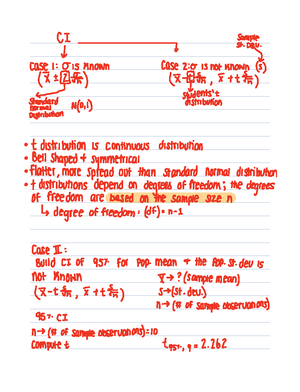 CI
Sample
st. dev.
Case 1: σ is known
Case 2: σ is not known (s)
(x̄ ± z σ/√n)
(x̄ - t s/√n, x̄ + t s/√n)
Standard
Normal
Distribution
N(0,1)
Students't
distribution
• t distribution is continuous distribution
• Bell Shaped & symmetrical
• Flatter, more spread out than standard normal distribution
• t distributions depend on degrees of freedom; the degrees
of freedom are based on the sample size n
↳ degree of freedom: (df) = n-1
Case II:
Build CI of 95% for pop. mean & the pop. st. dev is
not known
x̄ → ? (sample mean)
(x̄ - t s/√n, x̄ + t s/√n)
s → (st. dev.)
n → (# of sample observations)
95% CI
n → (# of sample observations) = 10
compute t
t 95%, 9 = 2.262